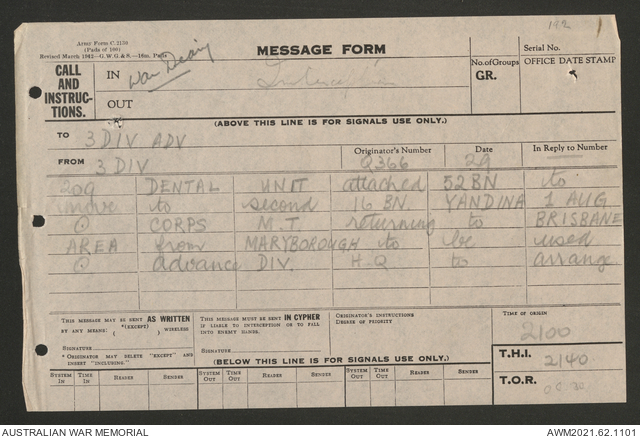 192 1
Army Form C.2130
(Pads of 100)
Revised March 1942—G.W.G.&S.—16m. Pads
MESSAGE FORM
CALL AND INSTRUC-TIONS.
IN War Diary
OUT
No. of Groups
GR.
Serial No.
OFFICE DATE STAMP
(ABOVE THIS LINE IS FOR SIGNALS USE ONLY.)
TO 3 DIV ADV
FROM 3 DIV
Originator's Number Q366
Date 29
In Reply to Number
209 DENTAL UNIT attached 52 BN to
move to second 16 BN. YANDINA 1 AUG
⊙ CORPS M.T returning to BRISBANE
AREA from MARYBOROUGH to be used
⊙ advance DIV. H.Q to arrange
THIS MESSAGE MAY BE SENT AS WRITTEN
BY ANY MEANS: *(EXCEPT) WIRELESS
SIGNATURE
* ORIGINATOR MAY DELETE "EXCEPT" AND
INSERT "INCLUDING."
THIS MESSAGE MUST BE SENT IN CYPHER
IF LIABLE TO INTERCEPTION OR TO FALL
INTO ENEMY HANDS.
SIGNATURE
ORIGINATOR'S INSTRUCTIONS
DEGREE OF PRIORITY
TIME OF ORIGIN
2100
T.H.I. 2140
T.O.R.
(BELOW THIS LINE IS FOR SIGNALS USE ONLY.)
SYSTEM IN TIME IN READER SENDER SYSTEM OUT TIME OUT READER SENDER SYSTEM OUT TIME OUT READER SENDER
AUSTRALIAN WAR MEMORIAL AWM2021.62.1101